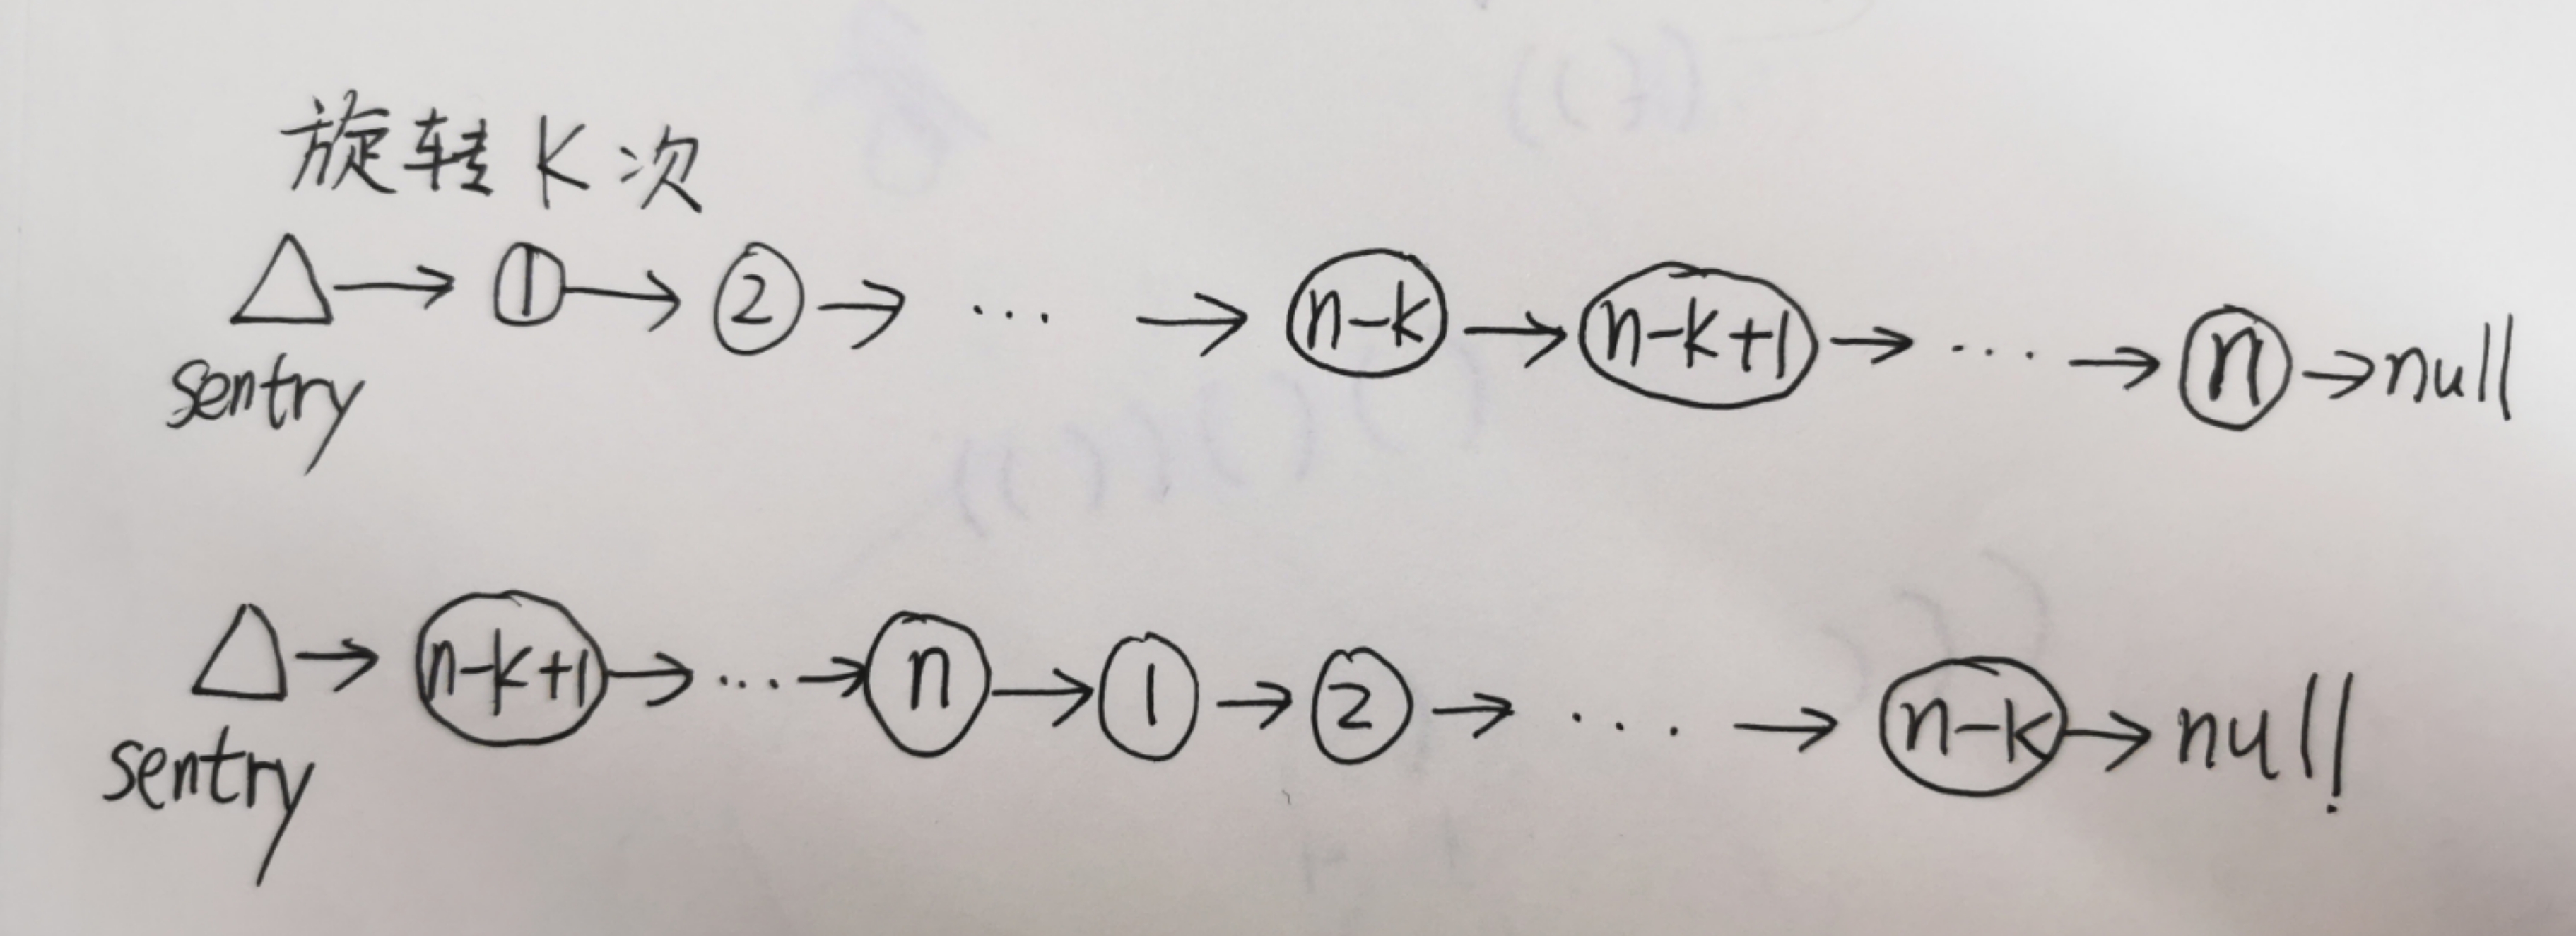 旋转K次
△ → ① → ② → ... → n-k → n-k+1 → ... → n → null
sentry
△ → n-k+1 → ... → n → 1 → 2 → ... → n-k → null
sentry